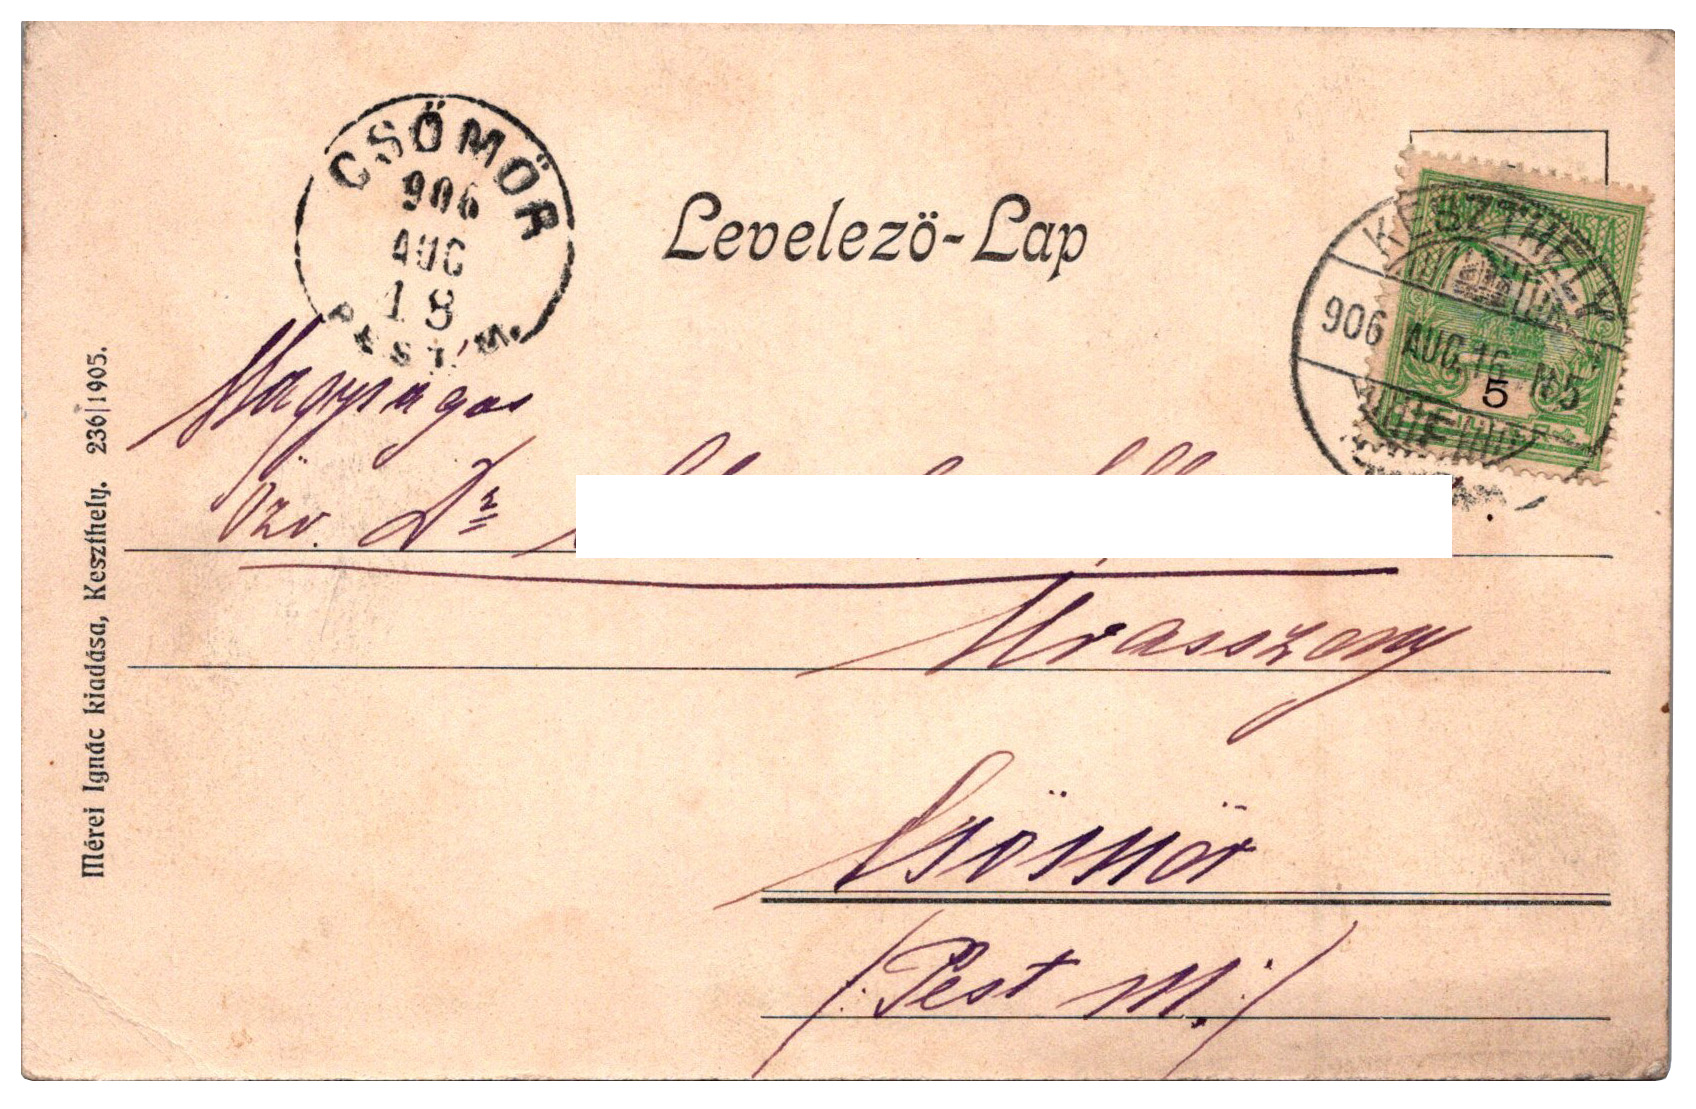 CSÖMÖR
906
AUG
18
PEST M.
Levelező-Lap
KESZTHELY
906 AUG. 16 N5
5
Nagyságos
Özv. Dr
Urasszony
Csömör
(: Pest M. :)
Mérei Ignác kiadása, Keszthely. 236|1905.